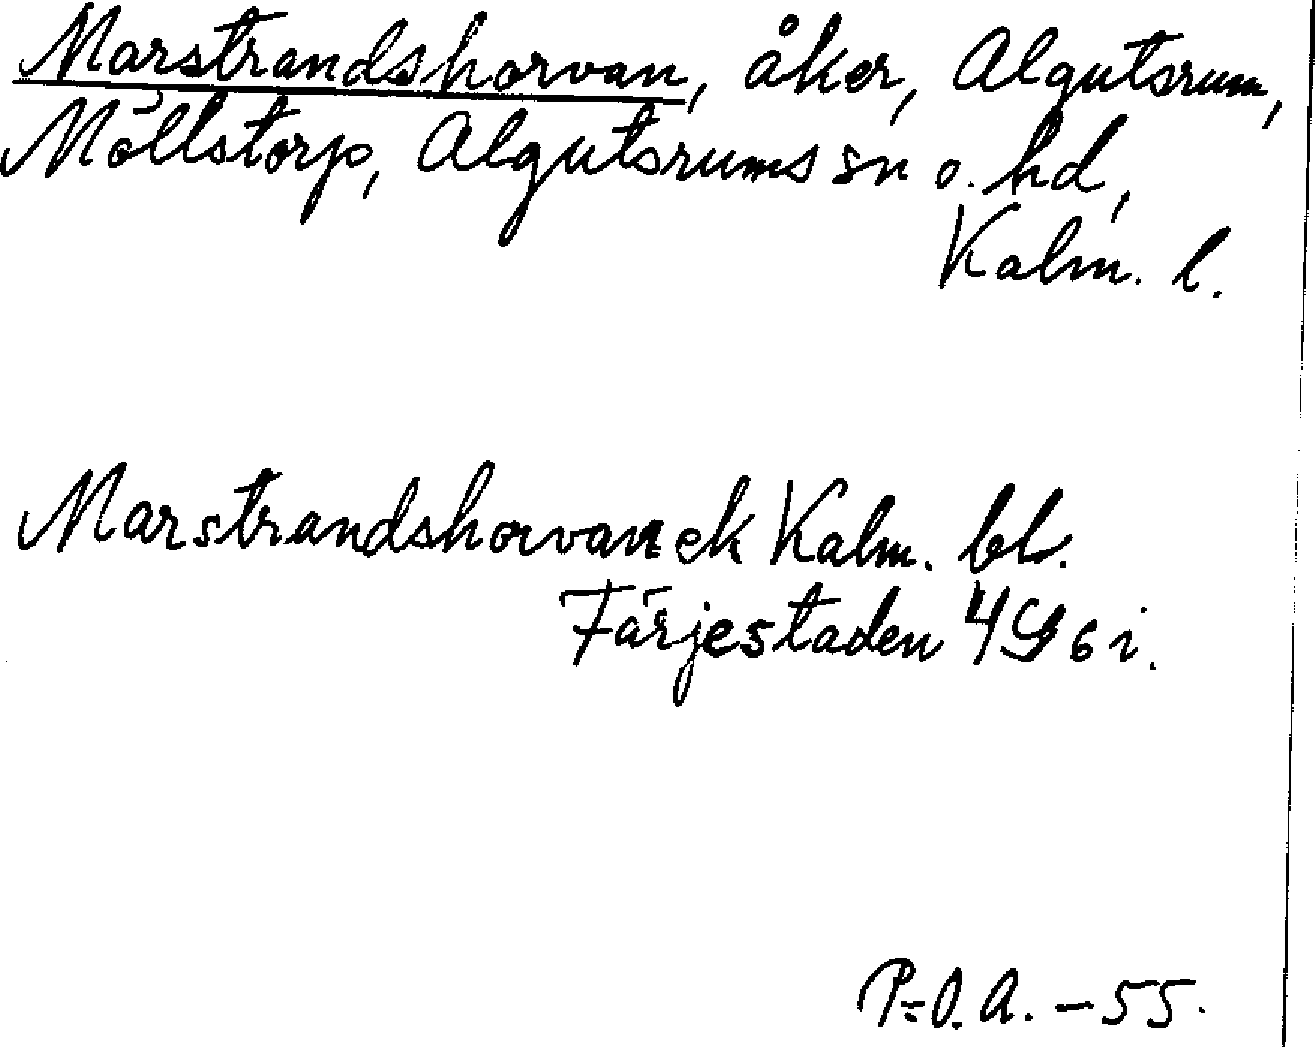 Marstrandshorvan, åker, Algutsrum,
Möllstorp, Algutsrums sn o. hd,
Kalm. l.
Marstrandshorvan ek Kalm. bl.
Färjestaden 4G 6 i.
P-O. A. - 55.